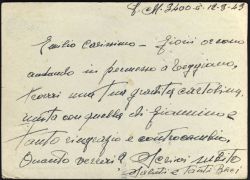 P.M. 3400 - li 12-8-43
Emilio carissimo - giorni or sono
andando in permesso a Reggiano,
trovai una tua gradita cartolina
unita con quella di Giannino e
tanto ringrazio e contraccambio.
Quando verrai? Scrivi subito
Saluti e tanti Baci